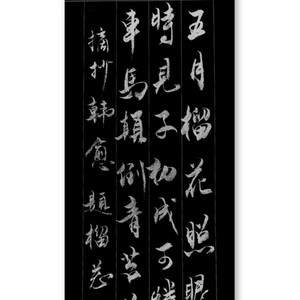 五月榴花照眼
時見子初成可憐
車馬顛倒青苔
摘抄韓愈題榴花